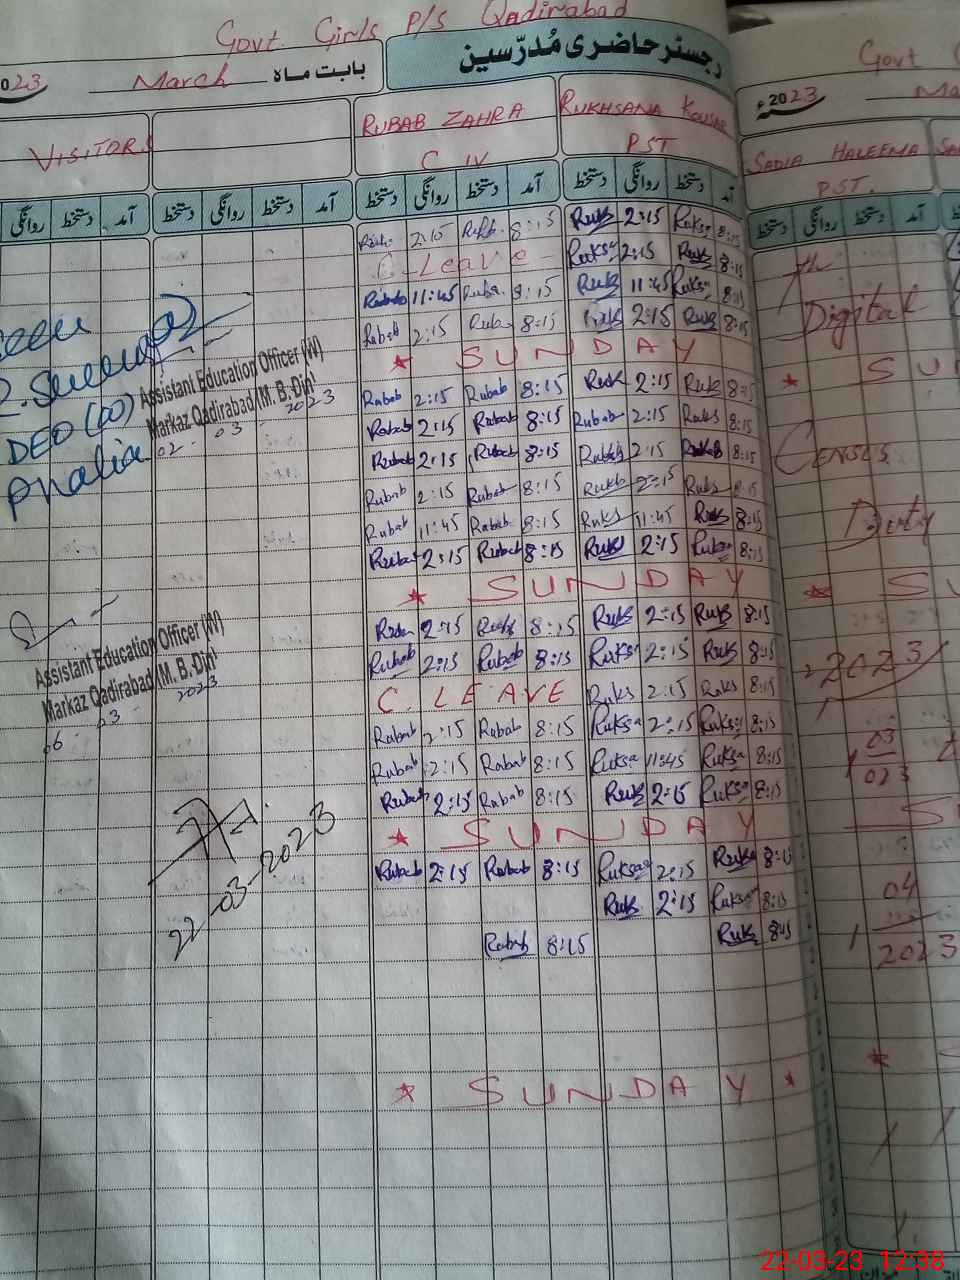 Govt. Girls P/S Qadirabad
رجسٹر حاضری مُدرّسین
بابت ماہ March 2023
VISITORS
RUBAB ZAHRA
C IV
RUKHSANA KOUSAR
PST
روانگی دستخط آمد دستخط روانگی دستخط آمد دستخط روانگی دستخط آمد دستخط روانگی دستخط آمد
2:15 Rub. 8:15 Ruks 2:15 Ruksa 8:15
C-Leave Ruksa 2:15 Ruk 8:15
Rubab 11:45 Ruba 8:15 Ruk 11:45 Ruksa 8:15
Rabab 2:15 Rub 8:15 Ruk 2:15 Ruk 8:15
* SUNDAY
Rabab 2:15 Rubab 8:15 Ruk 2:15 Ruk 8:15
Rabab 2:15 Rabab 8:15 Rubab 2:15 Ruks 8:15
Rubab 2:15 Rubab 8:15 Rukhs 2:15 8:15
Rubab 2:15 Rubab 8:15 2:15 Ruks 8:15
Rubab 11:45 Rabab 8:15 Ruks 11:45 Ruks 8:15
Rubab 2:15 Rubab 8:15 Ruks 2:15 Ruksa 8:15
* SUNDAY
2:15 8:15 Ruks 2:15 Ruks 8:15
Rubab 2:15 Rubab 8:15 Ruksa 2:15 Ruks 8:15
C. LEAVE Ruks 2:15 Ruks 8:15
Rabab 2:15 Rabab 8:15 Ruksa 2:15 Ruksa 8:15
Rubab 2:15 Rabab 8:15 Ruksa 11:45 Ruksa 8:15
Rubab 2:15 Rabab 8:15 Ruk 2:15 Ruksa 8:15
* SUNDAY
Rubab 2:15 Rabab 8:15 Ruksa 2:15 Ruksa 8:15
Ruks 2:15 Ruksa 8:15
Rabab 8:15 Ruks 8:15
* SUNDAY *
Seen
DEO (
Phalia
Assistant Education Officer (W)
Markaz Qadirabad (M. B. Din)
02 - 03 - 2023
Assistant Education Officer (W)
Markaz Qadirabad (M. B. Din)
06 - 03 - 2023
22-03-2023
Govt
2023ء
SADIA HALEEMA
PST.
دستخط روانگی دستخط آمد
Digital
*
Census
Duty
*
2023
03
023
04
2023
*
22-03-23 12:38